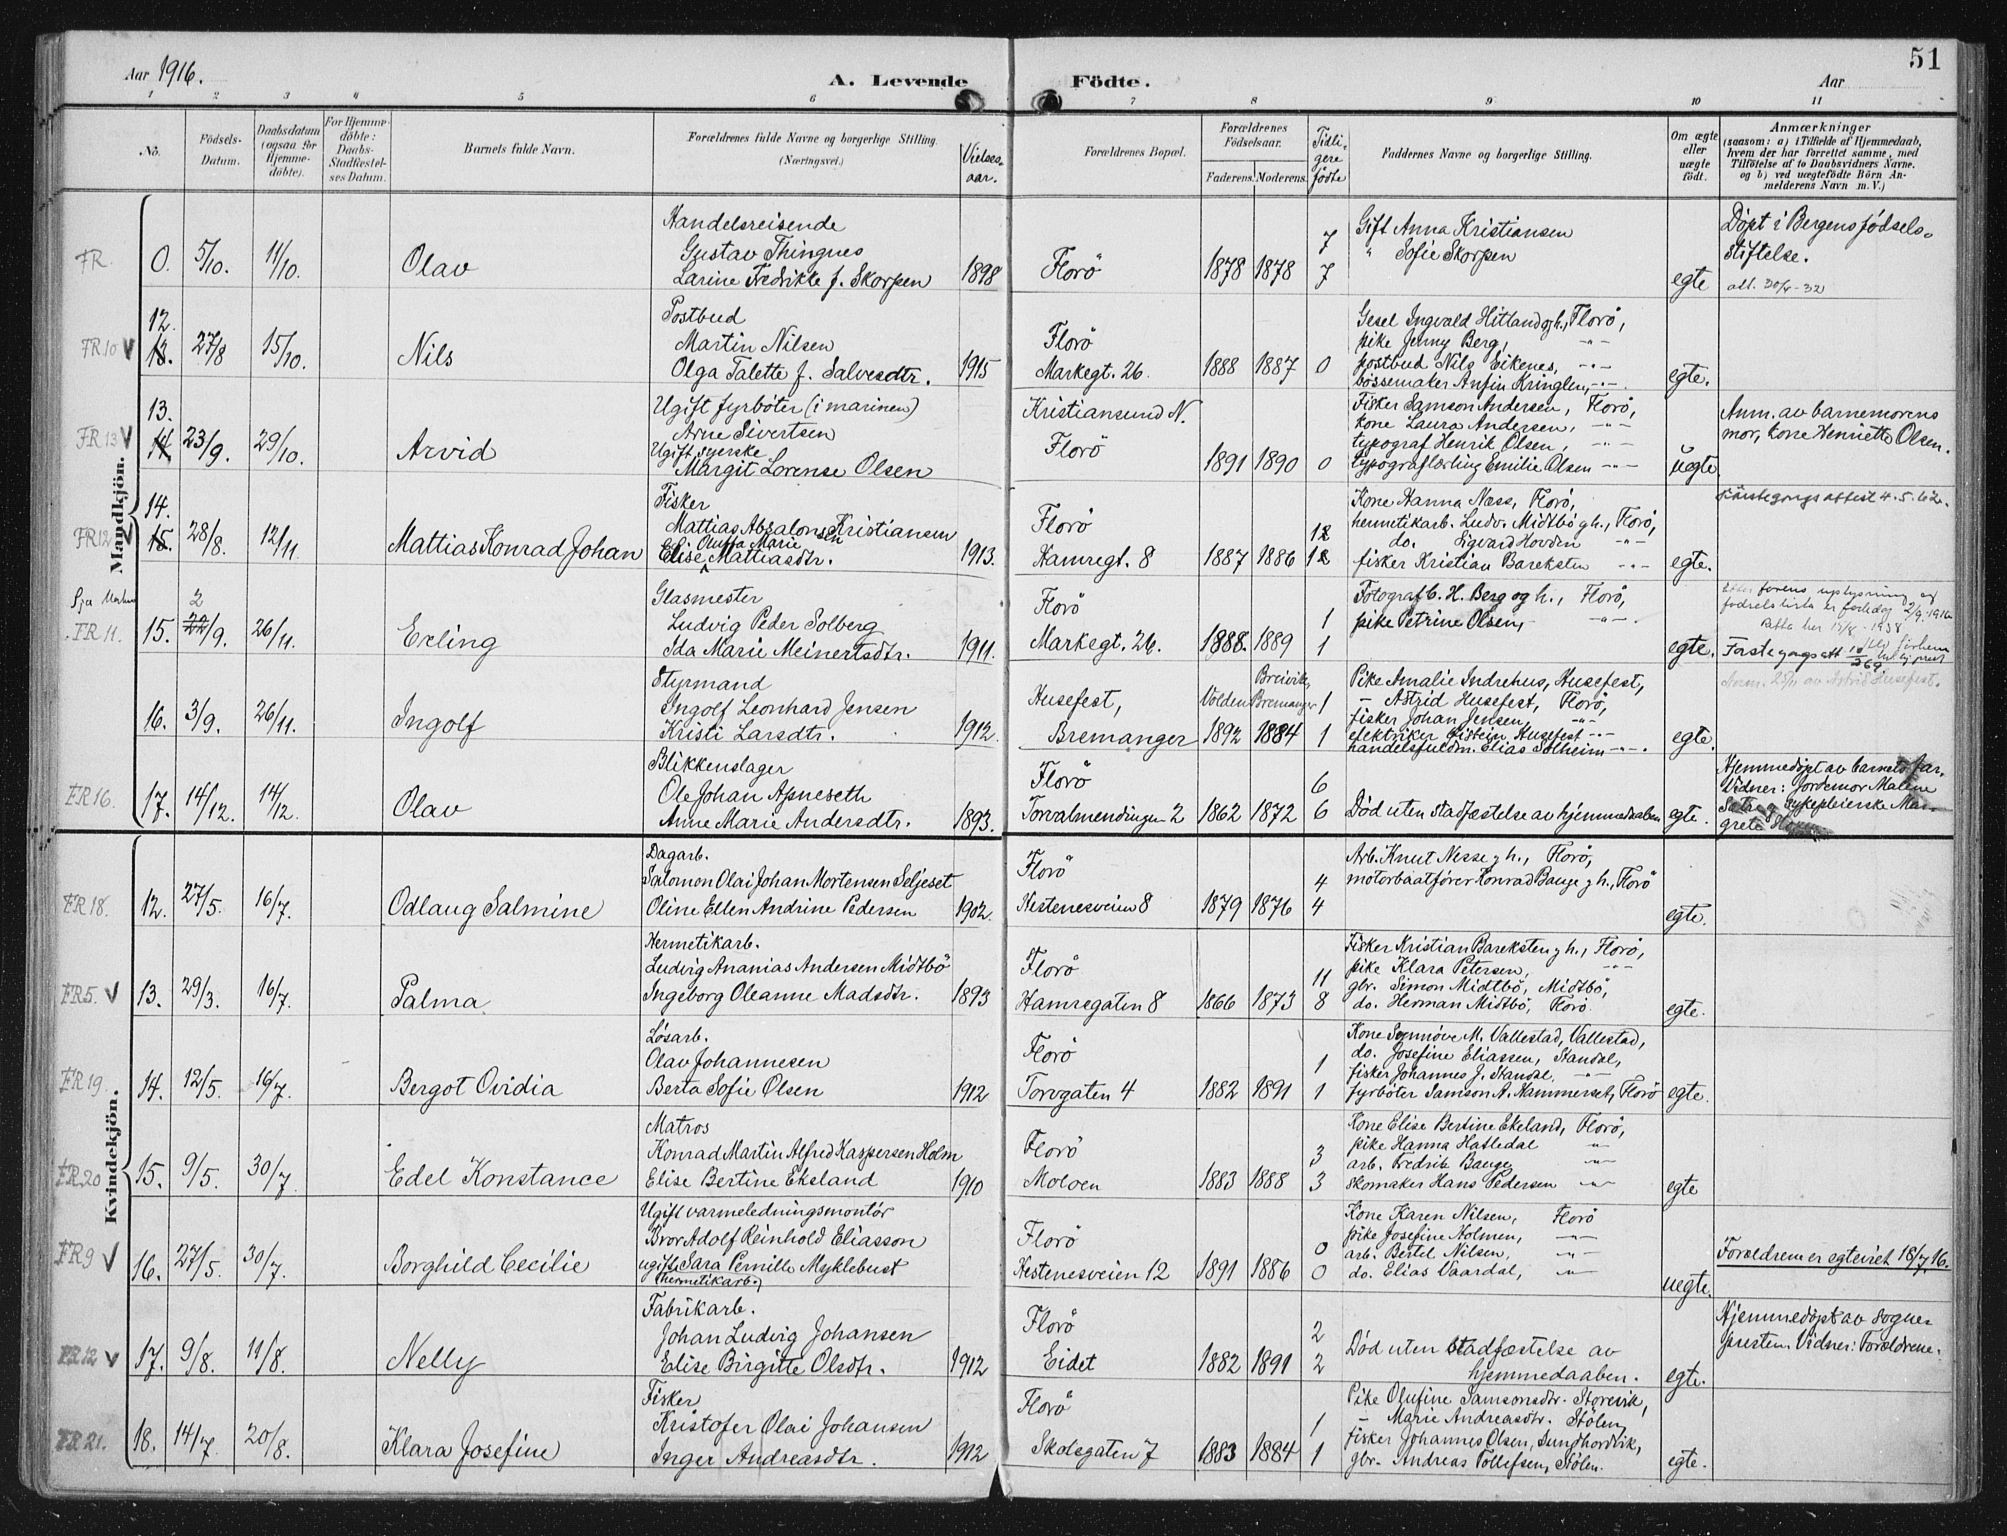 51
Aar 1916.
A. Levende Födte.
Aar
1 2 3 4 5 6 7 8 9 10 11
No.
Födsels-Datum.
Daabsdatum (ogsaa for Hjemmedöbte).
For Hjemmedöbte: Daabs-Stadfæstelses Datum.
Barnets fulde Navn.
Forældrenes fulde Navne og borgerlige Stilling.
(Næringsvei.)
Vielsesaar.
Forældrenes Bopæl.
Forældrenes Födselsaar.
Faderens. Moderens.
Tidligere födte
Faddernes Navne og borgerlige Stilling.
Om ægte eller uægte født.
Anmærkninger
(saasom: a) i Tilfælde af Hjemmedaab, hvem der har forrettet samme, med Tilföielse af to Daabsvidners Navne. og b) ved uægtefödte Börn Anmelderens Navn m. V.)
Mandkjön.
FR. 0. 5/10. 11/10. Olav
Handelsreisende
Gustav Thingnes
Larine Fredrikke f. Skorpen 1898
Florö 1878 1878 7 7
Gift Anna Kristiansen
" Sofie Skorpen
egte
Döpt i Bergens fødsels-
stiftelse.
att. 30/4-32
FR10 12. 13. 27/8 15/10. Nils
Postbud
Martin Nilsen
Olga Talette f. Salvesdtr. 1915
Florö
Markegt. 26. 1888 1887 0
Gesel Ingvald Hitland og h., Florö,
pike Jenny Berg, -"-
postbud Nils Eikenes, -"-
bössemaker Anfin Kringlen, -"-
egte.
FR13 13. 14. 23/9. 29/10. Arvid
Ugift fyrböter (i marinen)
Arne Sivertsen
Ugift syerske
Margit Lorense Olsen
Kristiansund N.
Florö 1891 1890 0
Fisker Samson Andersen, Florö,
kone Laura Andersen, -"-
typograf Henrik Olsen, -"-
typograflærling Emilie Olsen -"-
uegte
Anm. av barnemorens
mor, kone Henriette Olsen.
FR12 14. 15. 28/8. 12/11. Mattias Konrad Johan
Fisker
Mattias Absalonsen Kristiansen
Oluffa Marie
Elise Mattiasdtr. 1913.
Florö
Hamregt. 8 1887 1886 12 12
Kone Hanna Ness, Florö,
hermetikarb. Ludv. Midtbö g h., Florö,
do. Sigvard Hovden -"-
fisker Kristian Bareksten -"-
egte.
Förstegangsattest 4.5.62.
FR 11. 15. 2 22/9. 26/11. Erling
Glasmester
Ludvig Peder Solberg
Ida Marie Meinertsdtr. 1911.
Florö
Markegt. 26. 1888. 1889 1 1
Fotograf C. H. Berg og h., Florö,
pike Petrine Olsen, -"-
egte.
16. 3/9. 26/11. Ingolf
Styrmand
Ingolf Leonhard Jensen
Kristi Larsdtr. 1912.
Husefest,
Bremanger
Volden 1892
Breivik, Bremanger 1884 1 1
Pike Amalie Indrehus, Husefest,
– Astrid Husefest, Florö,
fisker Johan Jensen, -"-
elektriker Eistein Husefest -"-
handelsfuldm. Elias Solheim -"-
egte.
FR16. 17. 14/12. 14/12. Olav
Blikkenslager
Ole Johan Apneseth
Anne Marie Andersdtr. 1893.
Florö
Torvalmendingen 2 1862 1872 6 6
Död uten stadfæstelse av hjemmedaaben
egte.
Hjemmedöpt av barnets far.
Vidner: Jordemor Malene
Kvindekjön.
FR18. 12. 27/5. 16/7. Odlaug Salmine
Dagarb.
Salomon Olai Johan Mortensen Seljeset
Oline Ellen Andrine Pedersen 1902.
Florö
Hestenesveien 8 1879 1876 4 4
Arb. Knut Nesse g h., Florö,
motorbaatförer Konrad Bauge g h., Florö
egte.
FR5. 13. 29/3. 16/7. Palma
Hermetikarb.
Ludvig Ananias Andersen Midtbö
Ingeborg Oleanne Madsdtr. 1893
Florö
Hamregaten 8 1866 1873 11 8
Fisker Kristian Bareksten g h., Florö,
pike Klara Petersen, -"-
gbr. Simon Midtbö, Midtbö,
do. Herman Midtbö, Florö
egte.
FR19. 14. 12/5. 16/7. Bergot Ovidia
Løsarb.
Olav Johannesen
Berta Sofie Olsen 1912
Florö
Torvgaten 4 1882 1891 1 1
Kone Synnöve M. Vallestad, Vallestad,
do. Josefine Eliassen, Standal,
fisker Johannes J. Standal, -"-
fyrböter Samson A. Hammerset, Florö
egte.
FR20 15. 9/5. 30/7. Edel Konstance
Matros
Konrad Martin Alfred Kaspersen Holm
Elise Bertine Ekeland 1910
Florö
Moloen 1883 1888 3 3
Kone Elise Bertine Ekeland, Florö,
pike Hanna Hatledal -"-
arb. Fredrik Bauge, -"-
skomaker Hans Pedersen -"-
egte
FR9 16. 27/5. 30/7. Borghild Cecilie
Ugift varmeledningsmontör
Bror Adolf Reinhold Eliasson
ugift Sara Pernille Myklebust
(hermetikarb.)
Florö
Hestenesveien 12 1891 1886 0 0
Kone Karen Nilsen, Florö
pike Josefine Holmen, -"-
arb. Bertel Nilsen, -"-
do. Elias Vaardal, -"-
uegte.
Forældrene er egteviet 18/7 16.
FR12 17. 9/8. 11/8. Nelly
Fabrikarb.
Johan Ludvig Johansen
Elise Birgitte Olsdtr. 1912
Florö
Eidet 1882 1891 2 2
Död uten stadfæstelse av
hjemmedaaben.
egte.
Hjemmedöpt av sogne-
presten. Vidner: Forældrene.
FR21. 18. 14/7. 20/8. Klara Josefine
Fisker
Kristofer Olai Johansen
Inger Andreasdtr. 1912
Florö
Skolegaten 7 1883 1884 1 1
Pike Olufine Samsonsdtr. Storevik,
– Marie Andreasdtr. Stölen,
fisker Johannes Olsen, Sundhordvik,
gbr. Andreas Tollefsen, Stölen.
egte.